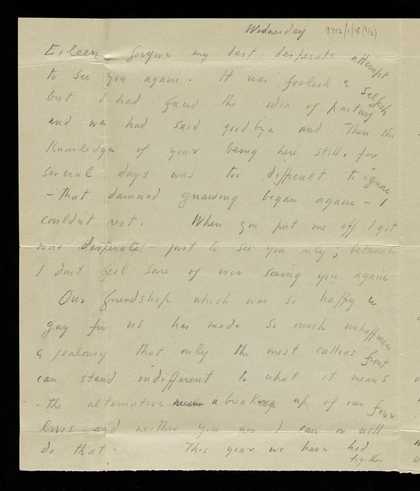 Wednesday
Eileen forgive my last desperate attempt
to see you again. It was foolish & selfish
but I had faced the idea of parting
and we had said goodbye and then the
knowledge of your being here still for
several days was too difficult to ignore
- that damned gnawing began again - I
couldn't rest. When you put me off I got
more desperate - just to see you only, because
I don't feel sure of ever seeing you again
Our friendship which was so happy &
gay for us has made so much unhappiness
& jealousy that only the most callous
can stand indifferent to what it means
- the alternative a break up of our four
lives and neither you nor I can or will
do that. This year we have had
together